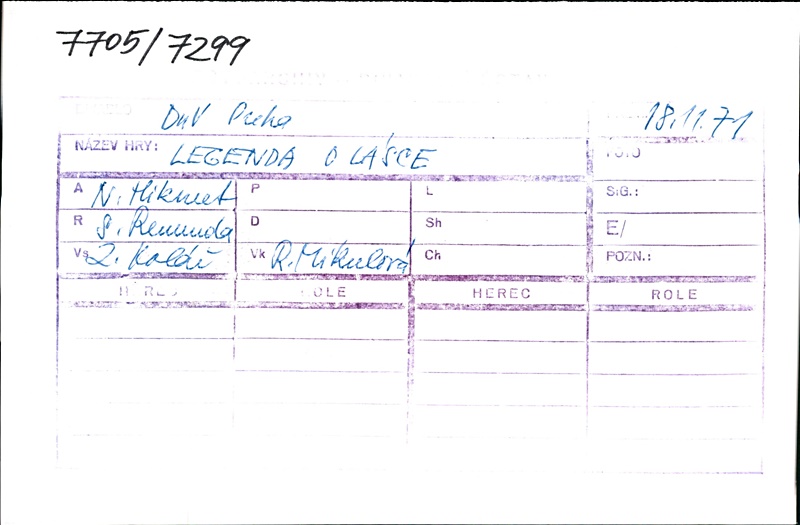 7705/7299
DIVADLO DNV Praha 18.11.71
NÁZEV HRY: LEGENDA O LÁSCE FOTO
A N. Hikmet P L SIG.:
R S. Remunda D Sh E/
Vs Z. Kolář Vk R. Mikulová Ch POZN.:
HEREC ROLE HEREC ROLE